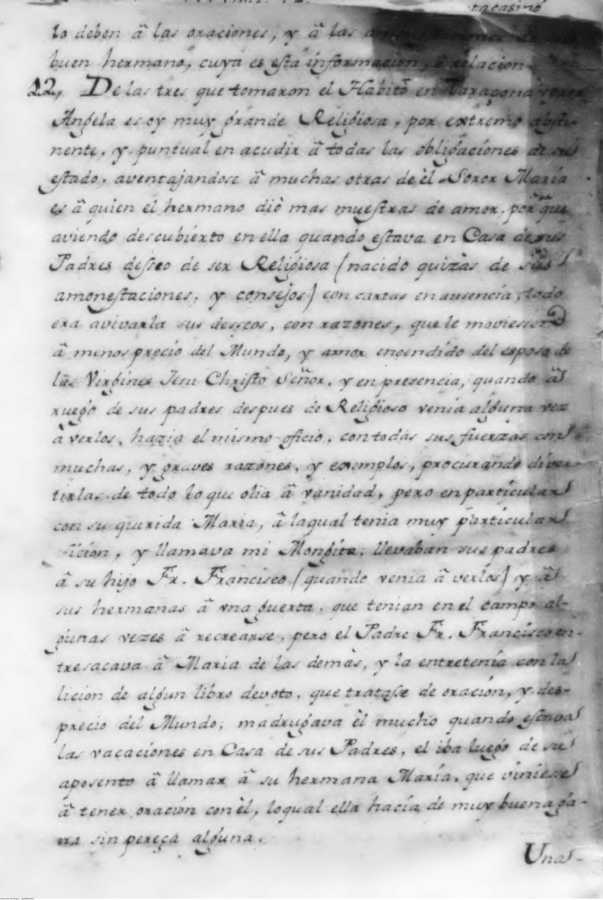 lo deben â las oraciones, y â las
buen hermano, cuya es esta informacion, ô relacion
12, De las tres que tomaron el Habito en Taraçona
Angela es oy muy grande Religiosa, por extremo absti-
nente, y puntual en acudir â todas las obligaciones de su
estado, aventajandose â muchas otras de èl Soror Maria
es â quien el hermano diò mas muestras de amor, porque
aviendo descubierto en ella quando estava en Casa de sus
Padres desseo de ser Religiosa (nacido quizàs de sus
amonestaciones, y consejos) con cartas en ausencia, todo
era avivarla sus deseos, con razones, que le moviessen
â menosprecio del Mundo, y amor encendido del esposo de
las Virgines Iesu Christo Señor, y en presencia, quando âl
ruego de sus padres despues de Religioso venia alguna vez
â verlos, hazia el mismo oficio, con todas sus fuerzas con
muchas, y graves razones, y exemplos, procurando diver-
tirlas de todo lo que olia â vanidad, pero en particular
con su querida Maria, â la qual tenia muy particular
ficion, y llamava mi Mongita, llevaban sus padres
â su hijo Fr. Francisco (quando venia â verlos) y âl
sus hermanas â vna guerta, que tenian en el campo al-
gunas vezes â recrearse, pero el Padre Fr. Francisco en-
tresacava â Maria de las demàs, y la entretenia con la
licion de algun libro devoto, que tratase de oración, y des-
precio del Mundo, madrugava èl mucho quando estava
las vacaciones en Casa de sus Padres, el iba luego de su
aposento â llamar â su hermana Maria, que viniese
â tener oración con èl, lo qual ella hacia de muy buena ga-
na sin pereça alguna.
Unas-